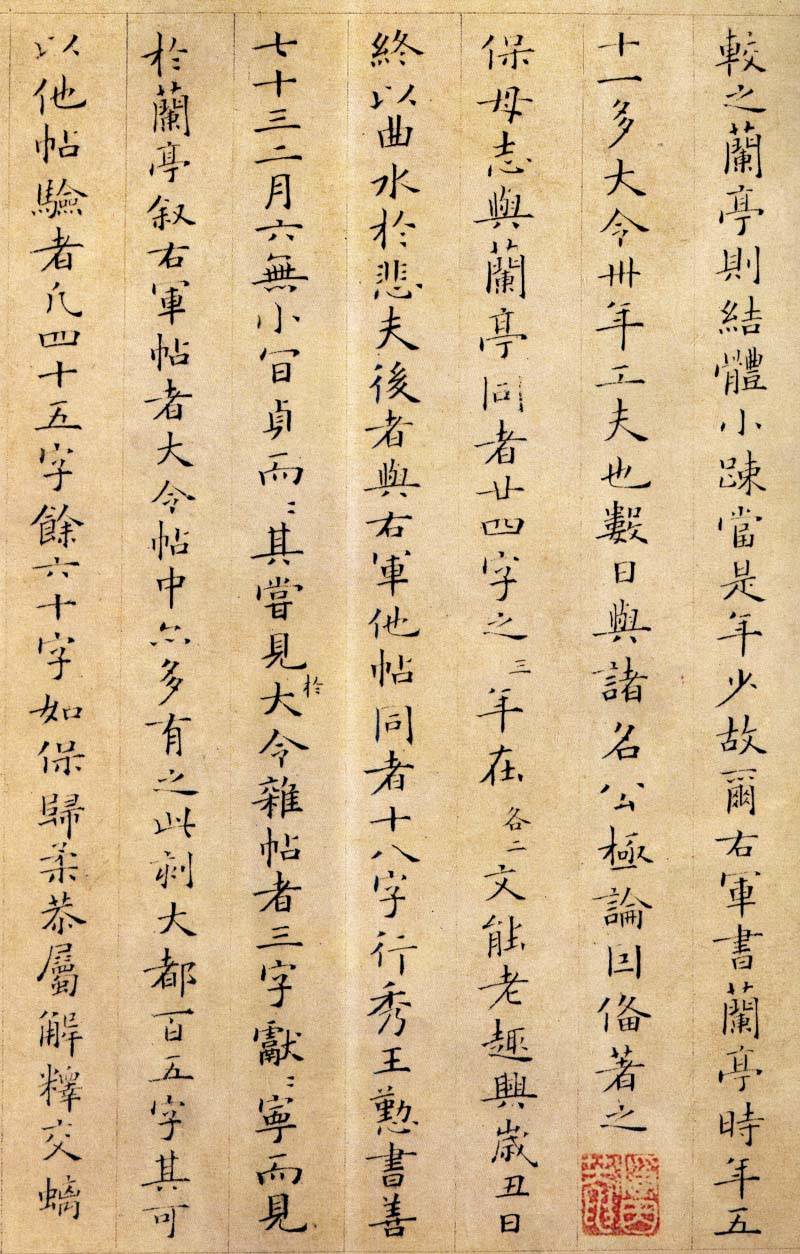 較之蘭亭則結體小踈當是年少故爾右軍書蘭亭時年五
十一多大令卅年工夫也數日與諸名公極論因俻著之
保母志與蘭亭同者廿四字之三年在各二文能老趣興歲丑日
終以曲水於悲夫後者與右軍他帖同者十八字行秀王懃書善
七十三二月六無小冝貞而〻其嘗見於大令雜帖者三字獻〻寧而見
於蘭亭叙右軍帖者大令帖中亦多有之此刻大都百五字其可
以他帖驗者凡四十五字餘六十字如保歸柔恭屬解釋交螭